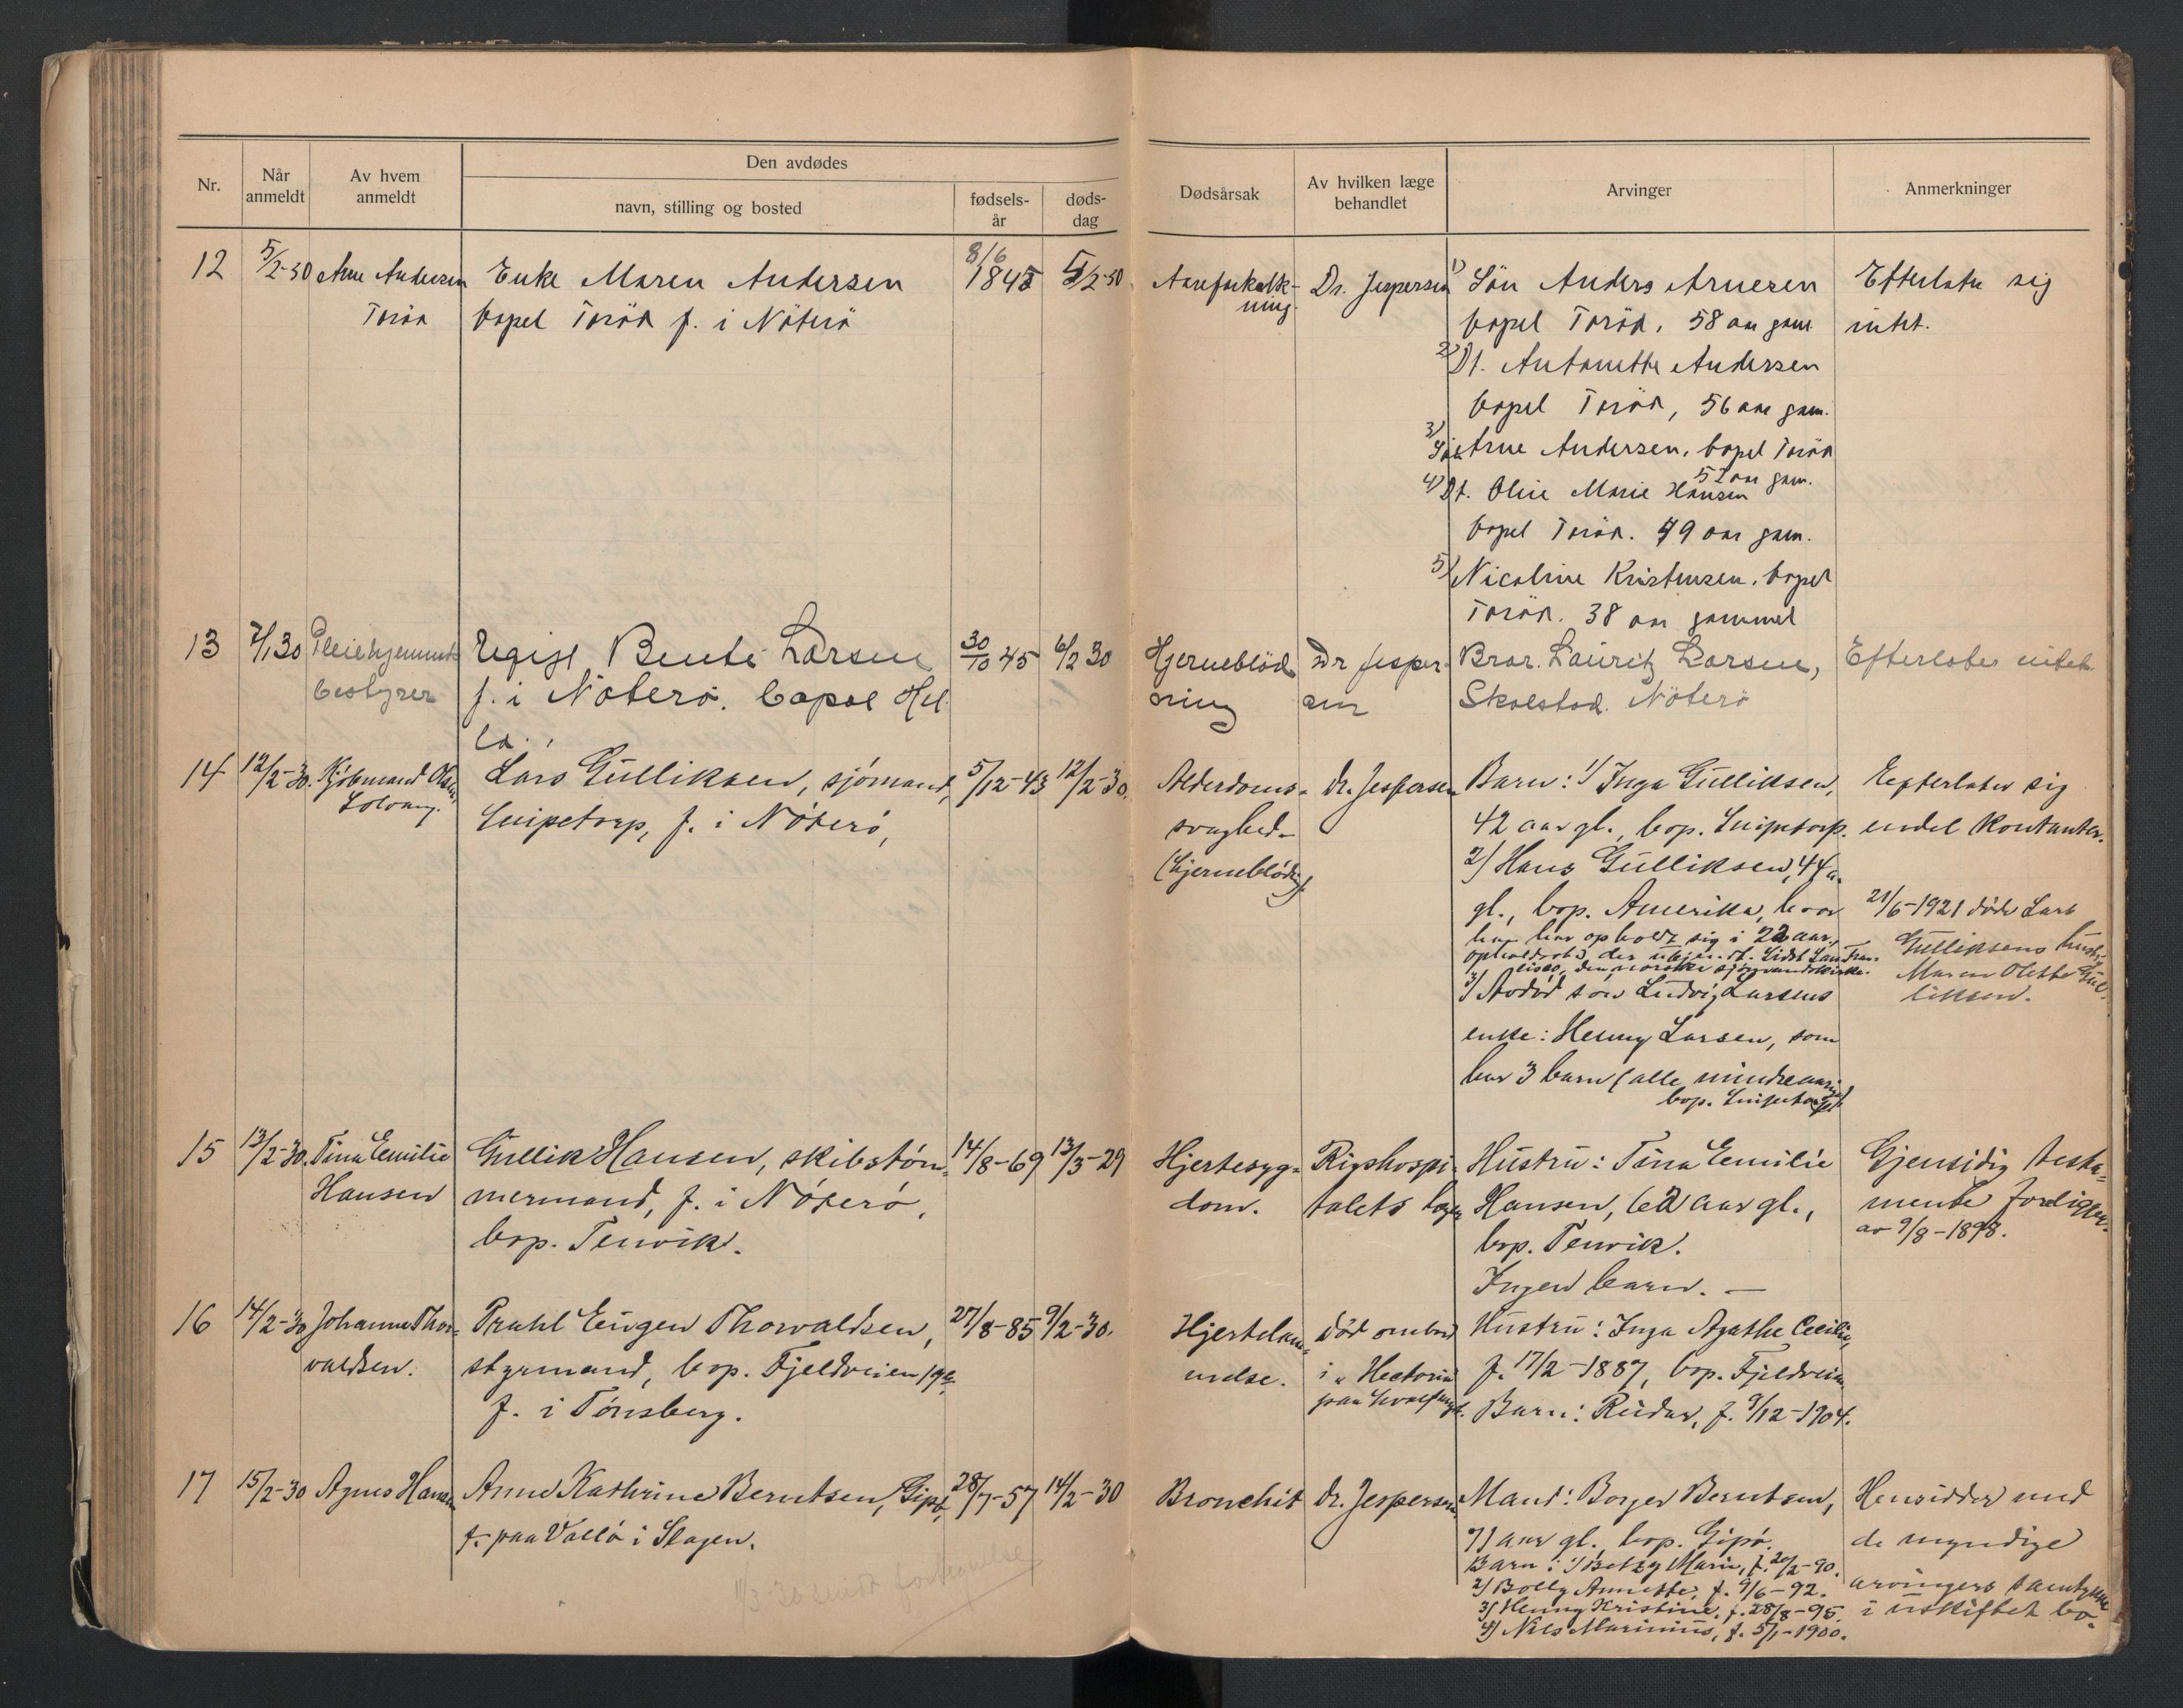 Nr.
Når anmeldt
Av hvem anmeldt
Den avdødes
navn, stilling og bosted
fødsels-år
døds-dag
Dødsårsak
Av hvilken læge behandlet
Arvinger
Anmerkninger
12 5/2-30 Arne Andersen Enke Maren Andersen 8/6 1845 5/2-30 Aareforkalk- Dr. Jespersen 1) Sön Anders Arnesen Efterlater sig
Torød bopel Torød f. i Nöterö ning. bopel Torød, 58 aar gam. intet.
2) Dt. Antonette Andersen
bopel Torød, 56 aar gam.
3) Sön Arne Andersen, bopel Torød
52 aar gam.
4) Dt. Oline Marie Hansen
bopel Torød. 49 aar gam.
5) Nicoline Kristensen, bopel
Torød. 38 aar gammel
13 7/1 30 Pleiehjemmets Bente Larsen 30/10 45 6/2 30 Hjerneblöd- Dr Jesper- Bror. Lauritz Larsen, Efterlater intet.
bestyrer f. i Nöterö. bopel Hel- ning sen Skolstad. Nöterö
la.
14 12/2-30. Kjöbmand Olsen, Lars Gulliksen, sjömand, 5/12-43 12/2-30. Alderdoms- dr. Jespersen Barn: 1/ Inga Gulliksen, Eefterlater sig
Solvang. Snipetorp, f. i Nöterö, svaghed- 42 aar gl., bop. Snipetorp. endel kontanter.
(hjerneblödn.) 2/ Hans Gulliksen, 44 a.
gl., bop. Amerika, hvor 21/6-1921 döde Lars
han har opholdt sig i 22 aar, Gulliksens hustru
opholdssted der ubekj. Sidst San Fran-
cisco, den norske sjömandskirke. Maren Olette Gul-
3/ Avdöd sön Ludvig Larsens liksen.
enke: Henny Larsen, som
har 3 barn (alle mindreaarige)
bop. Snipetorp.
15 13/2-30. Tina Emilie Gullik Hansen, skibstöm- 14/8-69 13/3-29 Hjertesyg- Rigshospi- Hustru: Tina Emilie Gjensidig testa-
Hansen mermand, f. i Nöterö, dom. talets læger Hansen, 62 aar gl., mente foreligger
bop. Tenvik. bop. Tenvik. av 9/8-1898.
Ingen barn. —
16 14/2-30 Johanne Thor- Prahl Eugen Thorvaldsen, 27/8-85 9/2-30. Hjertelam- Död ombord Hustru: Inga Agathe Cecilie,
valdsen. styrmand, bop. Fjeldveien 19 melse. i „Hectoria f. 17/2-1887, bop. Fjeldveien
f. i Tönsberg. paa hvalfangst. Barn: Reidar, f. 9/12-1904.
17 15/2-30 Agnes Hansen Anne Kathrine Berntsen, Gipö, 28/7-57 14/2-30 Bronchit dr. Jespersen Mand: Borger Berntsen, Hensidder med
f. paa Vallö i Slagen. 71 aar gl., bop. Gipö. de myndige
Barn: 1/ Betzy Marie, f. 20/2-90.
2/ Bolly Annette, f. 9/6-92. arvingers samtykke
3/ Henny Kristine, f. 28/8-95. i uskiftet bo.
4/ Nils Marinius, f. 5/1-1900.
11/3-30 sendt fortegnelse